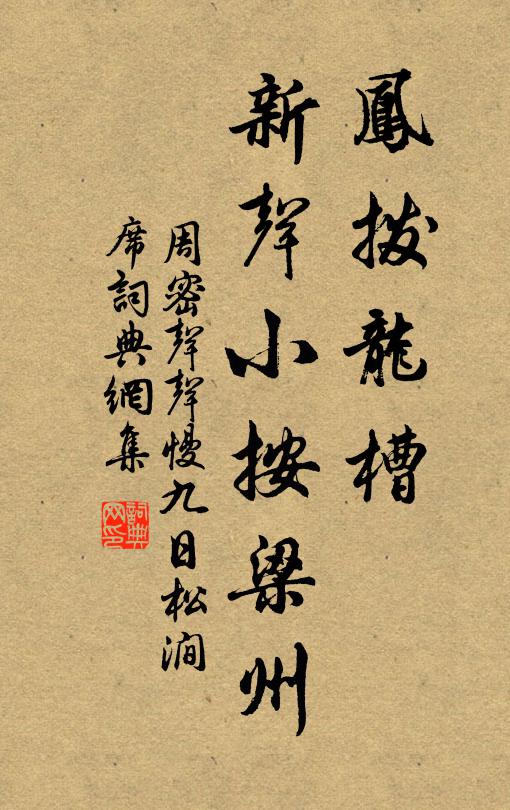 鳳撥龍槽
新聲小按梁州
周密聲聲慢九日松澗
席詞典網集
詞典网印